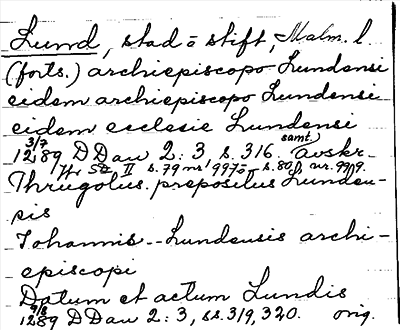 Lund, stad o stift, Malm. l
(forts.) archiepiscopo Lundensi
eidem archiepiscopo Lundensi
eidem ecclesie Lundensi
3/7 samt.
1289 DDan 2:3 s. 316. Avskr.
II s. 79 nr 997 = s. 80, nr. 999.
Thrugotus prepositus Lunden-
sis
Johannis -- Lundensis archi-
episcopi
Datum et actum Lundis
9/8
1289 DDan 2:3, ss. 319, 320. orig.